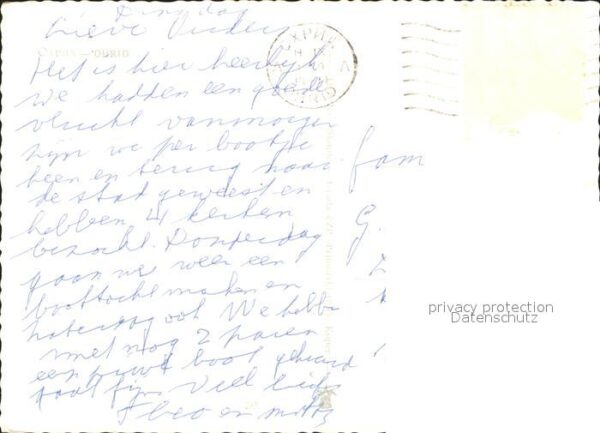 Dinsdag
Lieve Vrienden
Het is hier heerlijk
We hadden een goede
vlucht vanmorgen
zijn we per bootje
heen en terug naar
de stad geweest en
hebben 4 kerken
bezocht. Donderdag
gaan we weer een
boottocht maken en
zaterdag ook We hebben
met nog 2 paren
een privé boot gehuurd
gaat fijn Viel liefs
Theo en
Fam
G.
privacy protection
Datenschutz